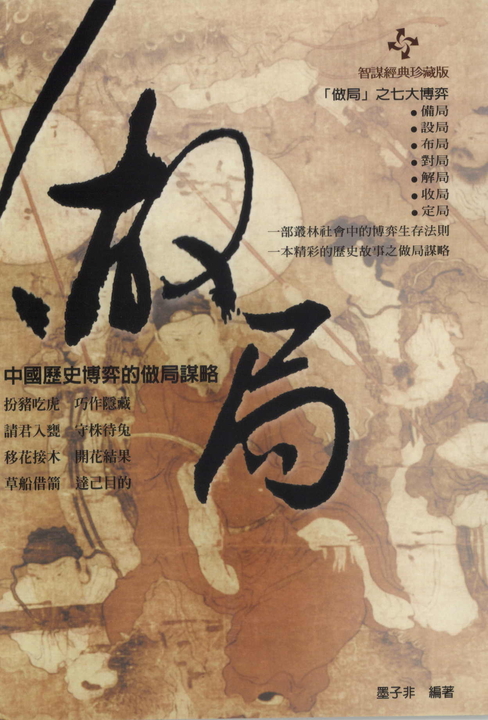 智謀經典珍藏版
「做局」之七大博弈
●備局
●設局
●布局
●對局
●解局
●收局
●定局
一部叢林社會中的博弈生存法則
一本精彩的歷史故事之做局謀略
做局
中國歷史博弈的做局謀略
扮豬吃虎 巧作隱藏
請君入甕 守株待兔
移花接木 開花結果
草船借箭 達己目的
墨子非 編著